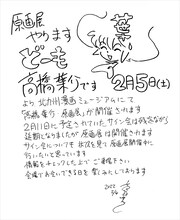 原画展
やります
どーも
高橋葉介です
葉
2月5日(土)
より北九州漫画ミュージアムにて
「高橋葉介原画展」が開催されます
2月11日に予定されていたサイン会は残念ながら
延期となりましたが原画展は開催されます
サイン会についても状況を見て原画展開催中に
行いたいと思っています
情報をチェックした上で ご来場下さい
会場でお会いできる日を楽しみにしております
2022